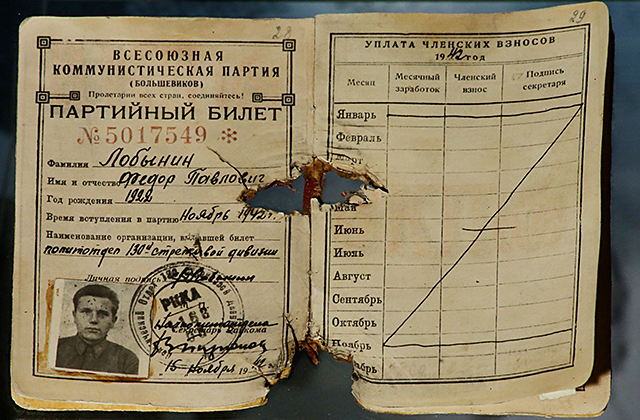 28
ВСЕСОЮЗНАЯ
КОММУНИСТИЧЕСКАЯ ПАРТИЯ
(БОЛЬШЕВИКОВ)
Пролетарии всех стран, соединяйтесь!
ПАРТИЙНЫЙ БИЛЕТ
№5017549 *
Фамилия Лобынин
Имя и отчество Федор Павлович
Год рождения 1922
Время вступления в партию Ноябрь 1942 г.
Наименование организации, выдавшей билет
политотдел 130й стрелковой дивизии
Личная подпись
РККА
Секретарь райкома
15 Ноября 1942
29
УПЛАТА ЧЛЕНСКИХ ВЗНОСОВ
1942 год
Месяц Месячный заработок Членский взнос Подпись секретаря
Январь
Февраль
Март
Май
Июнь
Июль
Август
Сентябрь
Октябрь
Ноябрь